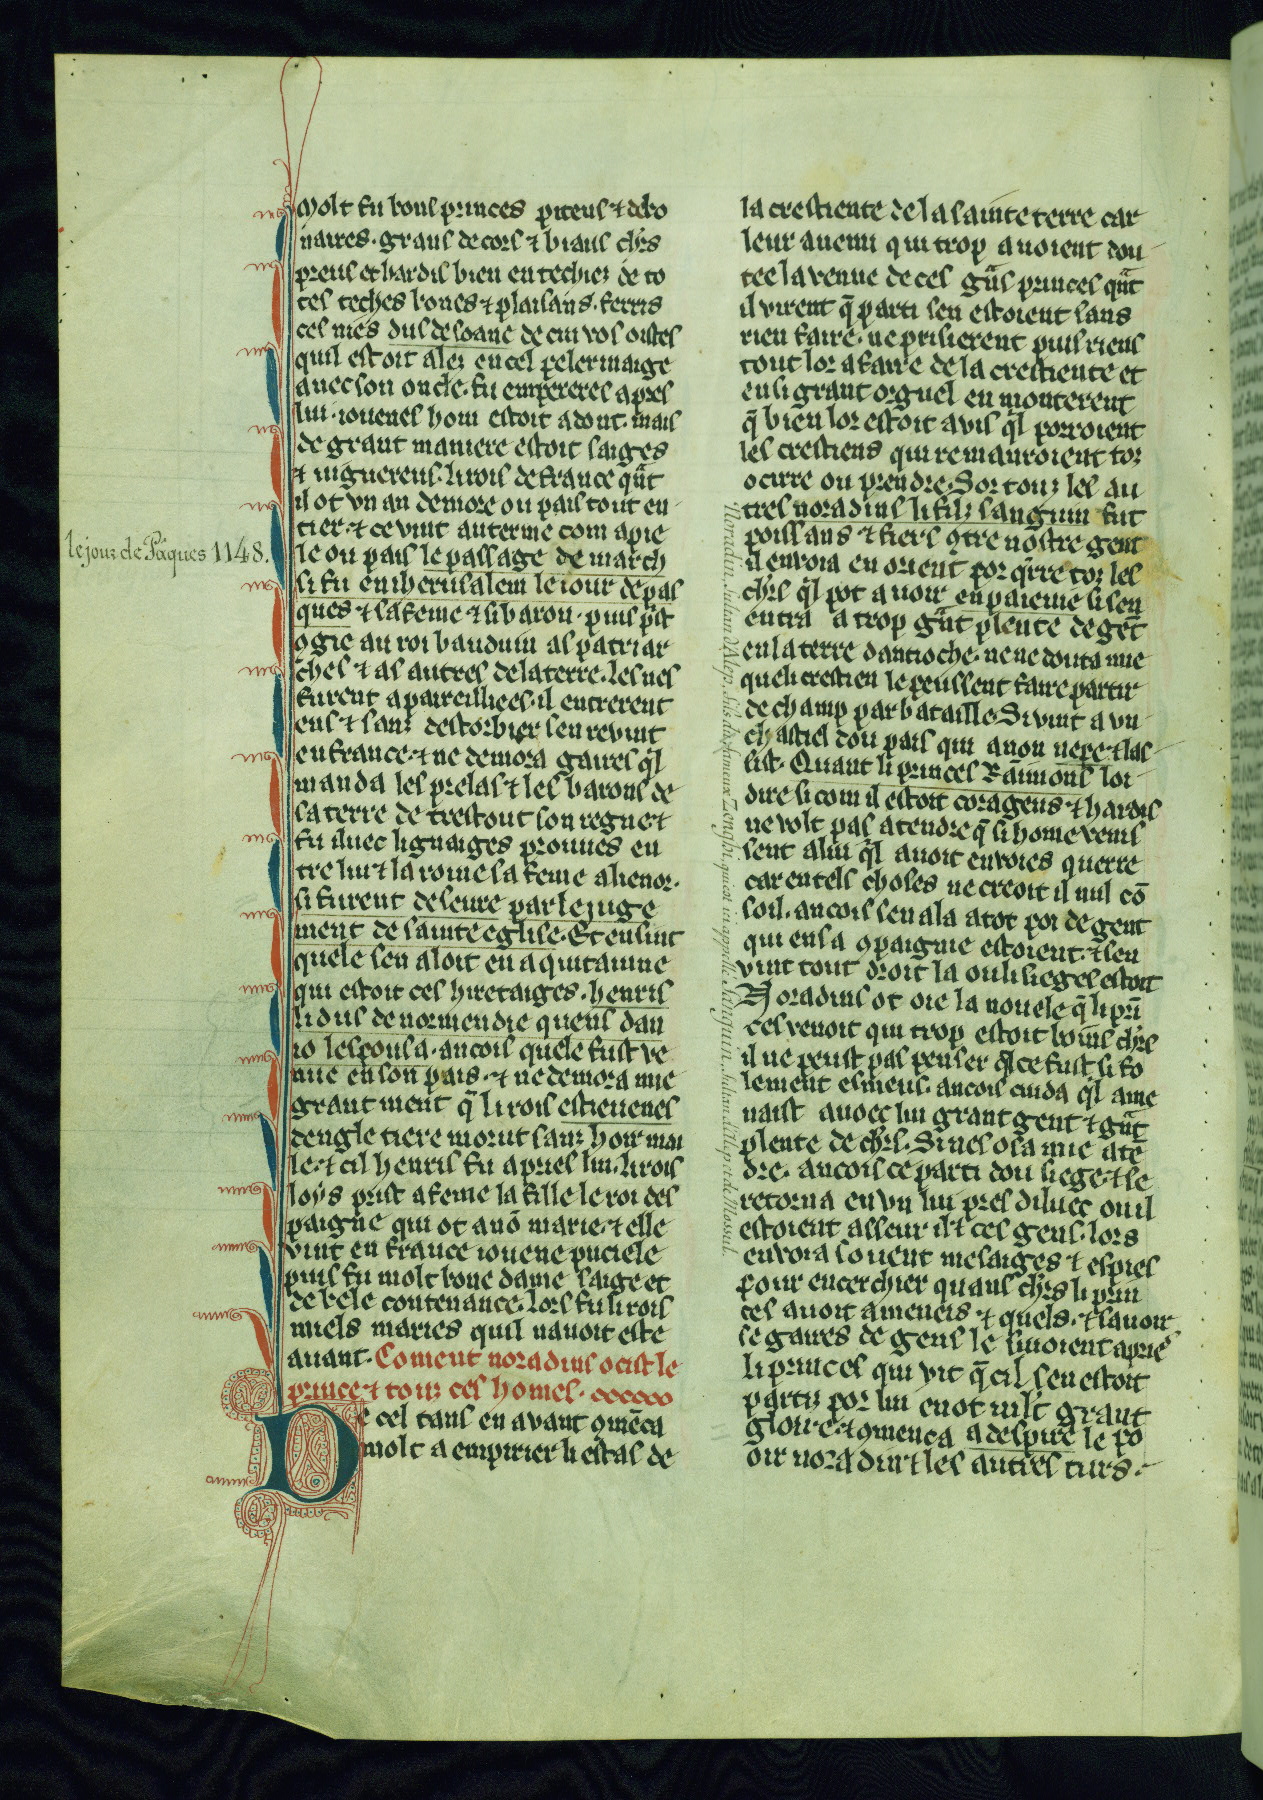 Molt fu bons princes piteus ⁊ debo
naires. grans de cors ⁊ biaus chr̃s
preus et hardis bien entechiez de to
tes teches bones ⁊ plaisans. ferris
ces niés dus de soaue de cui vos oistes
quil estoit alez en cel pelerinaige
auec son oncle. fu empereres apres
lui. iouenes hom estoit adont. mais
de grant maniere estoit saiges
⁊ uiguereus. li rois de france qũt
il ot vn an demore ou pais tout en
tier. ⁊ ce vint au terme com apie
le ou pais le passage de march
si fu en iherusalem le iour de pas
ques ⁊ sa feme ⁊ si baron. puis p̃st
ꝯgie au roi bauduin as patriar
ches ⁊ as autres de la terre. les nes
furent apareilliees. il entrerent
ens ⁊ sanz destorbier sen reuint
en france. ⁊ ne demora gaires q̃l
manda les prelas ⁊ les barons de
sa terre de trestout son regne. ⁊
fu iluec lignaiges prouues en
tre lui ⁊ la roine sa feme alienor.
si furent deseure par le iuge
ment de sainte eglise. Et ensint
quele sen aloit en aquitainne
qui estoit ces hiretaiges. henris
li dus de normendie quens dan
io lespousa. ancois quele fust ve
nue en son pais. ⁊ ne demora mie
grantment q̃ li rois estieuenes
dengletiere morut sanz hoir mai
le. ⁊ cil henris fu apries lui. li rois
loÿs prist a feme la fille le roi des
paigne qui ot anõ marie. ⁊ elle
vint en france iouene puciele
puis fu molt bone dame saige et
de bele contenance. lors fu li rois
miels maries quil nauoit este
auant. Coment noradins ocist le
prince ⁊ touz ces homes.
De cel tans en avant ꝯmẽca
molt a empirier li estas de
le jour de Pâques 1148.
la crestiente de la sainte terre car
leur auenu qui trop auoient dou
tee la venue de ces gñs princes qũt
il virent q̃ parti sen estoient sans
rien faire. ne prisierent puis riens
tout lor afaire de la crestiente et
en si grant orguel en monterent
q̃ bien lor estoit avis q̃l porroient
les crestiens qui remanroient toz
ocirre ou prendre. Sor touz les au
tres noradins li filz sanguin fut
poissans ⁊ fiers ꝯtre nostre gent
il enuoia en orient por q̃rre toz les
chr̃s q̃l pot auoir en paienie si sen
entra a trop gũt plente de gẽt
en la terre dantioche. ne ne douta mie
que li crestien le peussent faire partir
de champ par bataille. Si vint a vn
chastiel dou pais qui anon nepe. ⁊ las
sist. Quant li princes Raimons loi
dire si com il estoit corageus ⁊ hardis
ne volt pas atendre q̃ si home venis
sent a lui q̃l auoit enuoies querre
car en tels choses ne creoit il nul cõ
soil. ancois sen ala atot poi de gent
qui en sa ꝯpaignie estoient. ⁊ sen
vint tout droit la ou li sieges estoit
Noradins ot oie la nouele q̃ li prĩ
ces venoit qui trop estoit boins chr̃s
il ne peust pas penser q̃ ce fust si fo
lement esmeus. ancois cuida q̃l ame
naist auoec lui grant gent ⁊ gũt
plente de chr̃s. Si nes osa mie atẽ
dre. ancois ce parti dou siege. ⁊ se
retorna en vn liu pres diluec ou il
estoient asseur il ⁊ ces gens. lors
enuoia souent mesaiges ⁊ espies
pour encerchier quans chr̃s li prin
ces auoit ameneis ⁊ quels. ⁊ sauoir
se gaires de gens le siuoient apries
li princes qui vit q̃ cil sen estoit
partiz por lui en ot uilt grant
gloire. ⁊ ꝯmenca a despire le po
oir noradin ⁊ les autres turs.